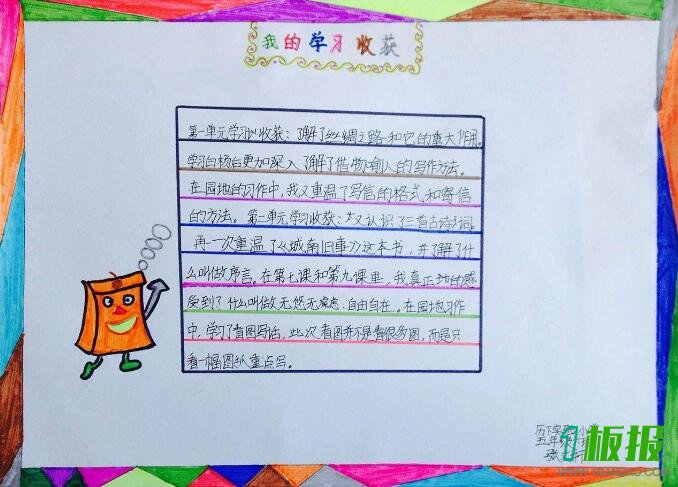 我的学习收获
第一单元学习收获：了解了丝绸之路和它的重大作用。
学习白杨后更加深入了解了借物喻人的写作方法。
在园地的习作中，我又重温了写信的格式和寄信
的方法。第二单元学习收获：又认识了三首古诗词。
再一次重温了《城南旧事》这本书，并了解了什
么叫做序言。在第七课和第九课里，我真正地的感
受到了什么叫做无愁无虑、自由自在。在园地习作
中，学习了看图写话，此次看图并不是看很多图，而是只
看一幅图从重点写。
历下实小
五年
张
板报